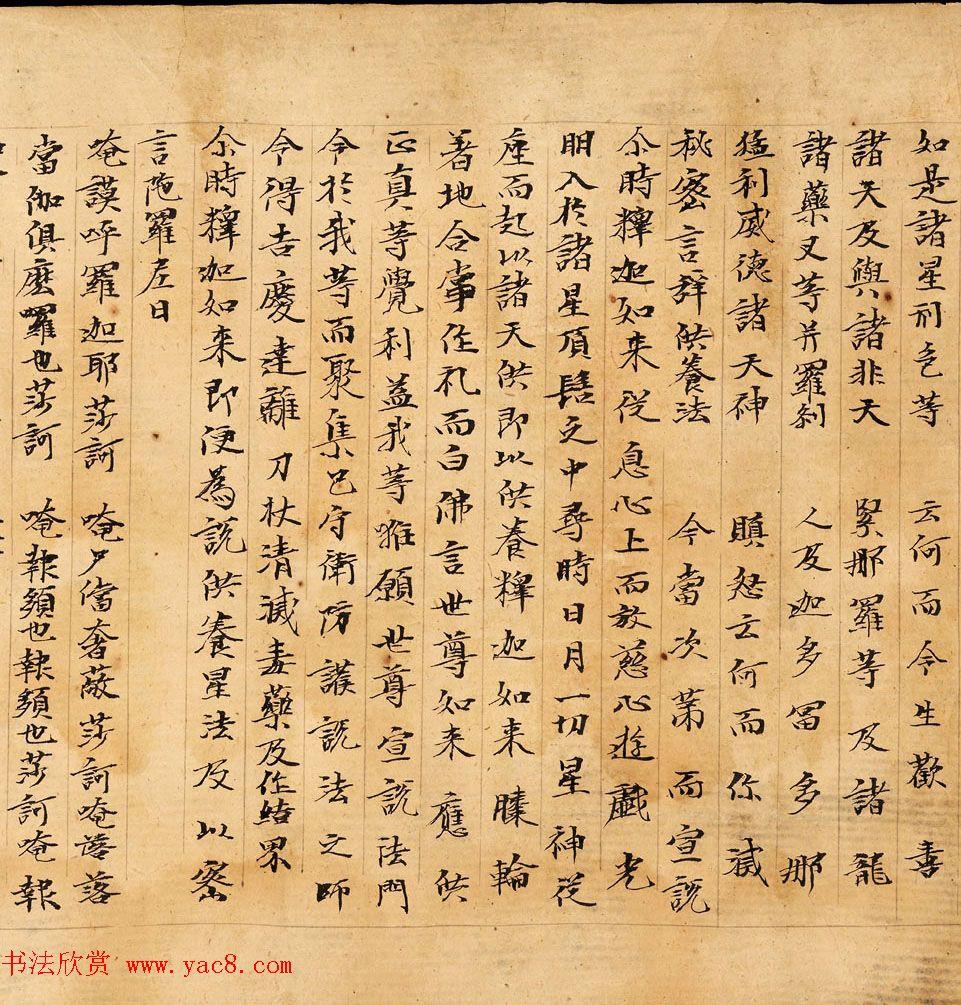 如是諸星刑色等 云何而今生歡喜
諸天及與諸非天 緊那羅等及諸龍
諸藥叉等并羅刹 人及迦多冨多那
猛利威德諸天神 瞋怒云何而你滅
秘密言辞供養法 今當次第而宣說
尒時釋迦如来從息心上而放慈心遊戲光
明入於諸星頂髻之中尋時日月一切星神從
座而起以諸天供即以供養釋迦如来膝輪
著地合掌作礼而白佛言世尊如来應供
正真等覺利益我等唯願世尊宣說法門
令於我等而聚集已守衛防護說法之師
令得吉慶遠離刀杖清滅毒藥及作結界
尒時釋迦如来即便為說供養星法及以密
言陁羅尼曰
唵謨呼羅迦耶莎訶 唵尸儅奢蔽莎訶唵落
當伽俱麼囉也莎訶 唵報頞也報頞也莎訶唵報
书法欣赏 www.yac8.com